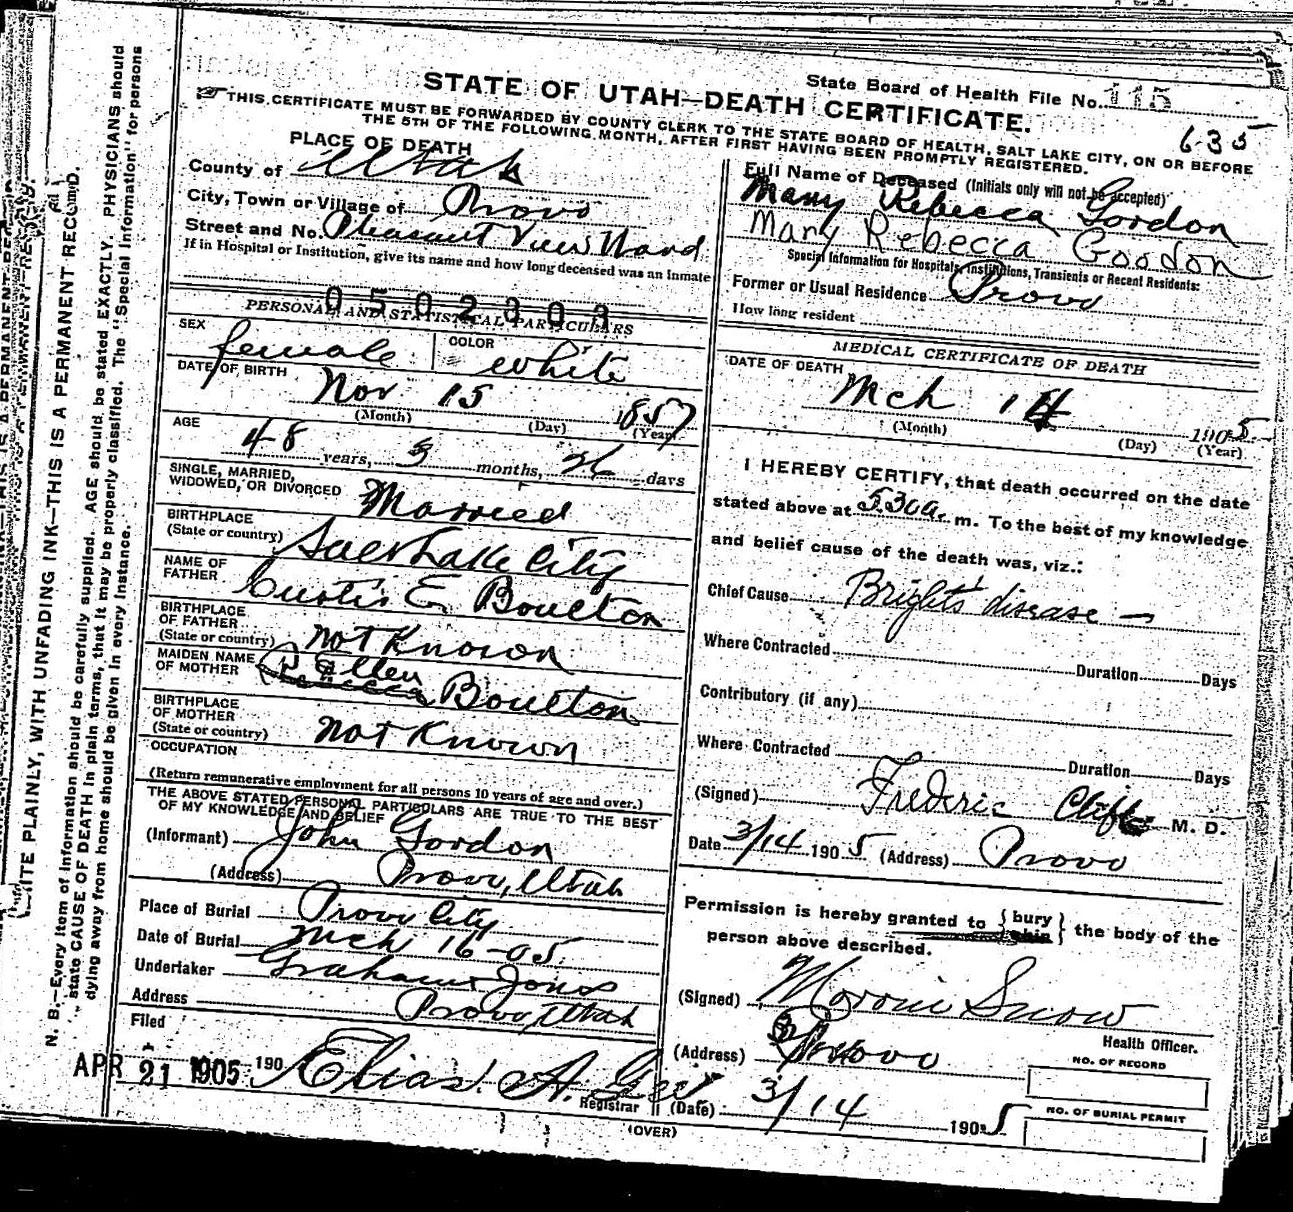 State Board of Health File No. 115
STATE OF UTAH—DEATH CERTIFICATE.
635
THIS CERTIFICATE MUST BE FORWARDED BY COUNTY CLERK TO THE STATE BOARD OF HEALTH, SALT LAKE CITY, ON OR BEFORE
THE 5TH OF THE FOLLOWING MONTH, AFTER FIRST HAVING BEEN PROMPTLY REGISTERED.
PLACE OF DEATH
County of Utah
City, Town or Village of Provo
Street and No. Pleasant View Ward
If in Hospital or Institution, give its name and how long deceased was an Inmate
0502303
PERSONAL AND STATISTICAL PARTICULARS
SEX female COLOR white
DATE OF BIRTH Nov 15 1857
(Month) (Day) (Year)
AGE 48 years, 3 months, 26 days
SINGLE, MARRIED,
WIDOWED, OR DIVORCED Married
BIRTHPLACE
(State or country) Salt Lake City
NAME OF
FATHER Curtis E Boulton
BIRTHPLACE
OF FATHER
(State or country) not Known
MAIDEN NAME
OF MOTHER Ellen Boulton
BIRTHPLACE
OF MOTHER
(State or country) not Known
OCCUPATION
(Return remunerative employment for all persons 10 years of age and over.)
THE ABOVE STATED PERSONAL PARTICULARS ARE TRUE TO THE BEST
OF MY KNOWLEDGE AND BELIEF
(Informant) John Gordon
(Address) Provo, Utah
Place of Burial Provo City
Date of Burial Mch 16-05
Undertaker Graham Jones
Address Provo, Utah
Filed
APR 21 1905 190 Elias A. Gee
Registrar
Full Name of Deceased (Initials only will not be accepted)
Mary Rebecca Gordon
Mary Rebecca Goodon
Special Information for Hospitals, Institutions, Transients or Recent Residents:
Former or Usual Residence Provo
How long resident
MEDICAL CERTIFICATE OF DEATH
DATE OF DEATH Mch 14 1905
(Month) (Day) (Year)
I HEREBY CERTIFY, that death occurred on the date
stated above at 5.30 a. m. To the best of my knowledge
and belief cause of the death was, viz.:
Chief Cause Bright's disease —
Where Contracted Duration Days
Contributory (if any)
Where Contracted Duration Days
(Signed) Frederic Clift M. D.
Date 3/14 1905 (Address) Provo
Permission is hereby granted to { bury ship } the body of the
person above described.
(Signed) Moroni Snow
Health Officer.
(Address) Provo
NO. OF RECORD
(Date) 3/14 1905
NO. OF BURIAL PERMIT
(OVER)
WRITE PLAINLY, WITH UNFADING INK—THIS IS A PERMANENT RECORD.
N. B.—Every item of information should be carefully supplied. AGE should be stated EXACTLY. PHYSICIANS should
state CAUSE OF DEATH in plain terms, that it may be properly classified. The "Special Information" for persons
dying away from home should be given in every instance.